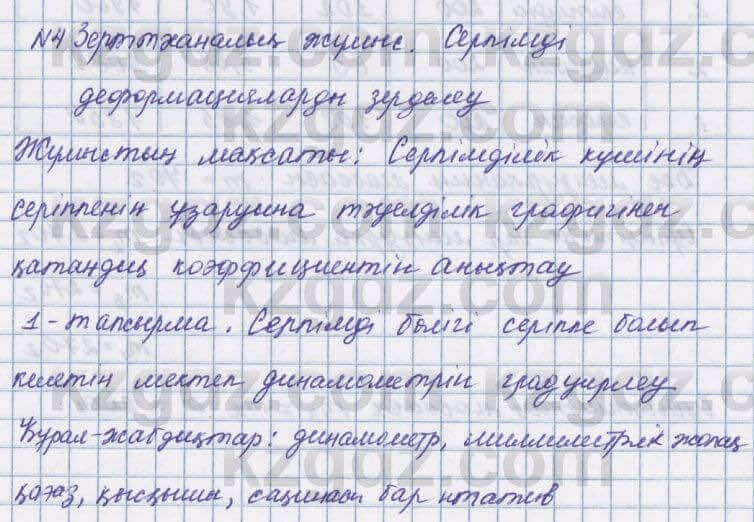 №4 Зертханалық жұмыс. Серпімді
деформацияларды зерделеу
Жұмыстың мақсаты: Серпімділік күшінің
серіппенің ұзаруына тәуелділік графигінен
қатаңдық коэффициентін анықтау
1-тапсырма. Серпімді бөлігі серіппе болып
келетін мектеп динамометрін градуирлеу
Құрал-жабдықтар: динамометр, миллиметрлік жолақ
қағаз, қысқышы, сақинасы бар штатив
kzgdz.com